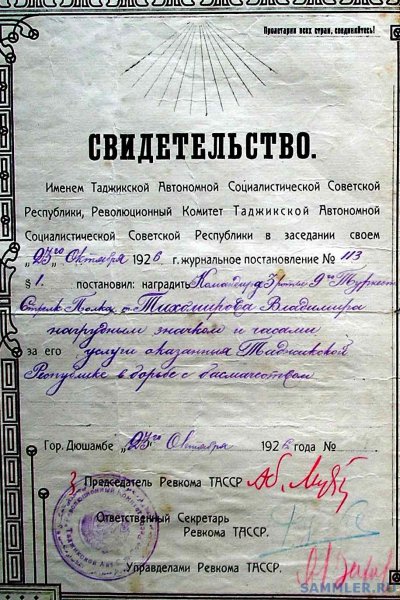 Пролетарии всех стран, соединяйтесь!
СВИДЕТЕЛЬСТВО.
Именем Таджикской Автономной Социалистической Советской
Республики, Революционный Комитет Таджикской Автономной
Социалистической Советской Республики в заседании своем
„23го Октября 1926 г. журнальное постановление № 113
§ 1. постановил: наградить Командира 3 роты 9го Туркест
Стрелк Полка т. Тихомирова Владимира
нагрудным значком и часами
за его услуги оказанныя Таджикской
Республике в борьбе с басмачеством
Гор. Дюшамбе „23го Октября 1926 года №
Председатель Ревкома ТАССР.
Ответственный Секретарь
Ревкома ТАССР.
Управделами Ревкома ТАССР.
SAMMLER.RU